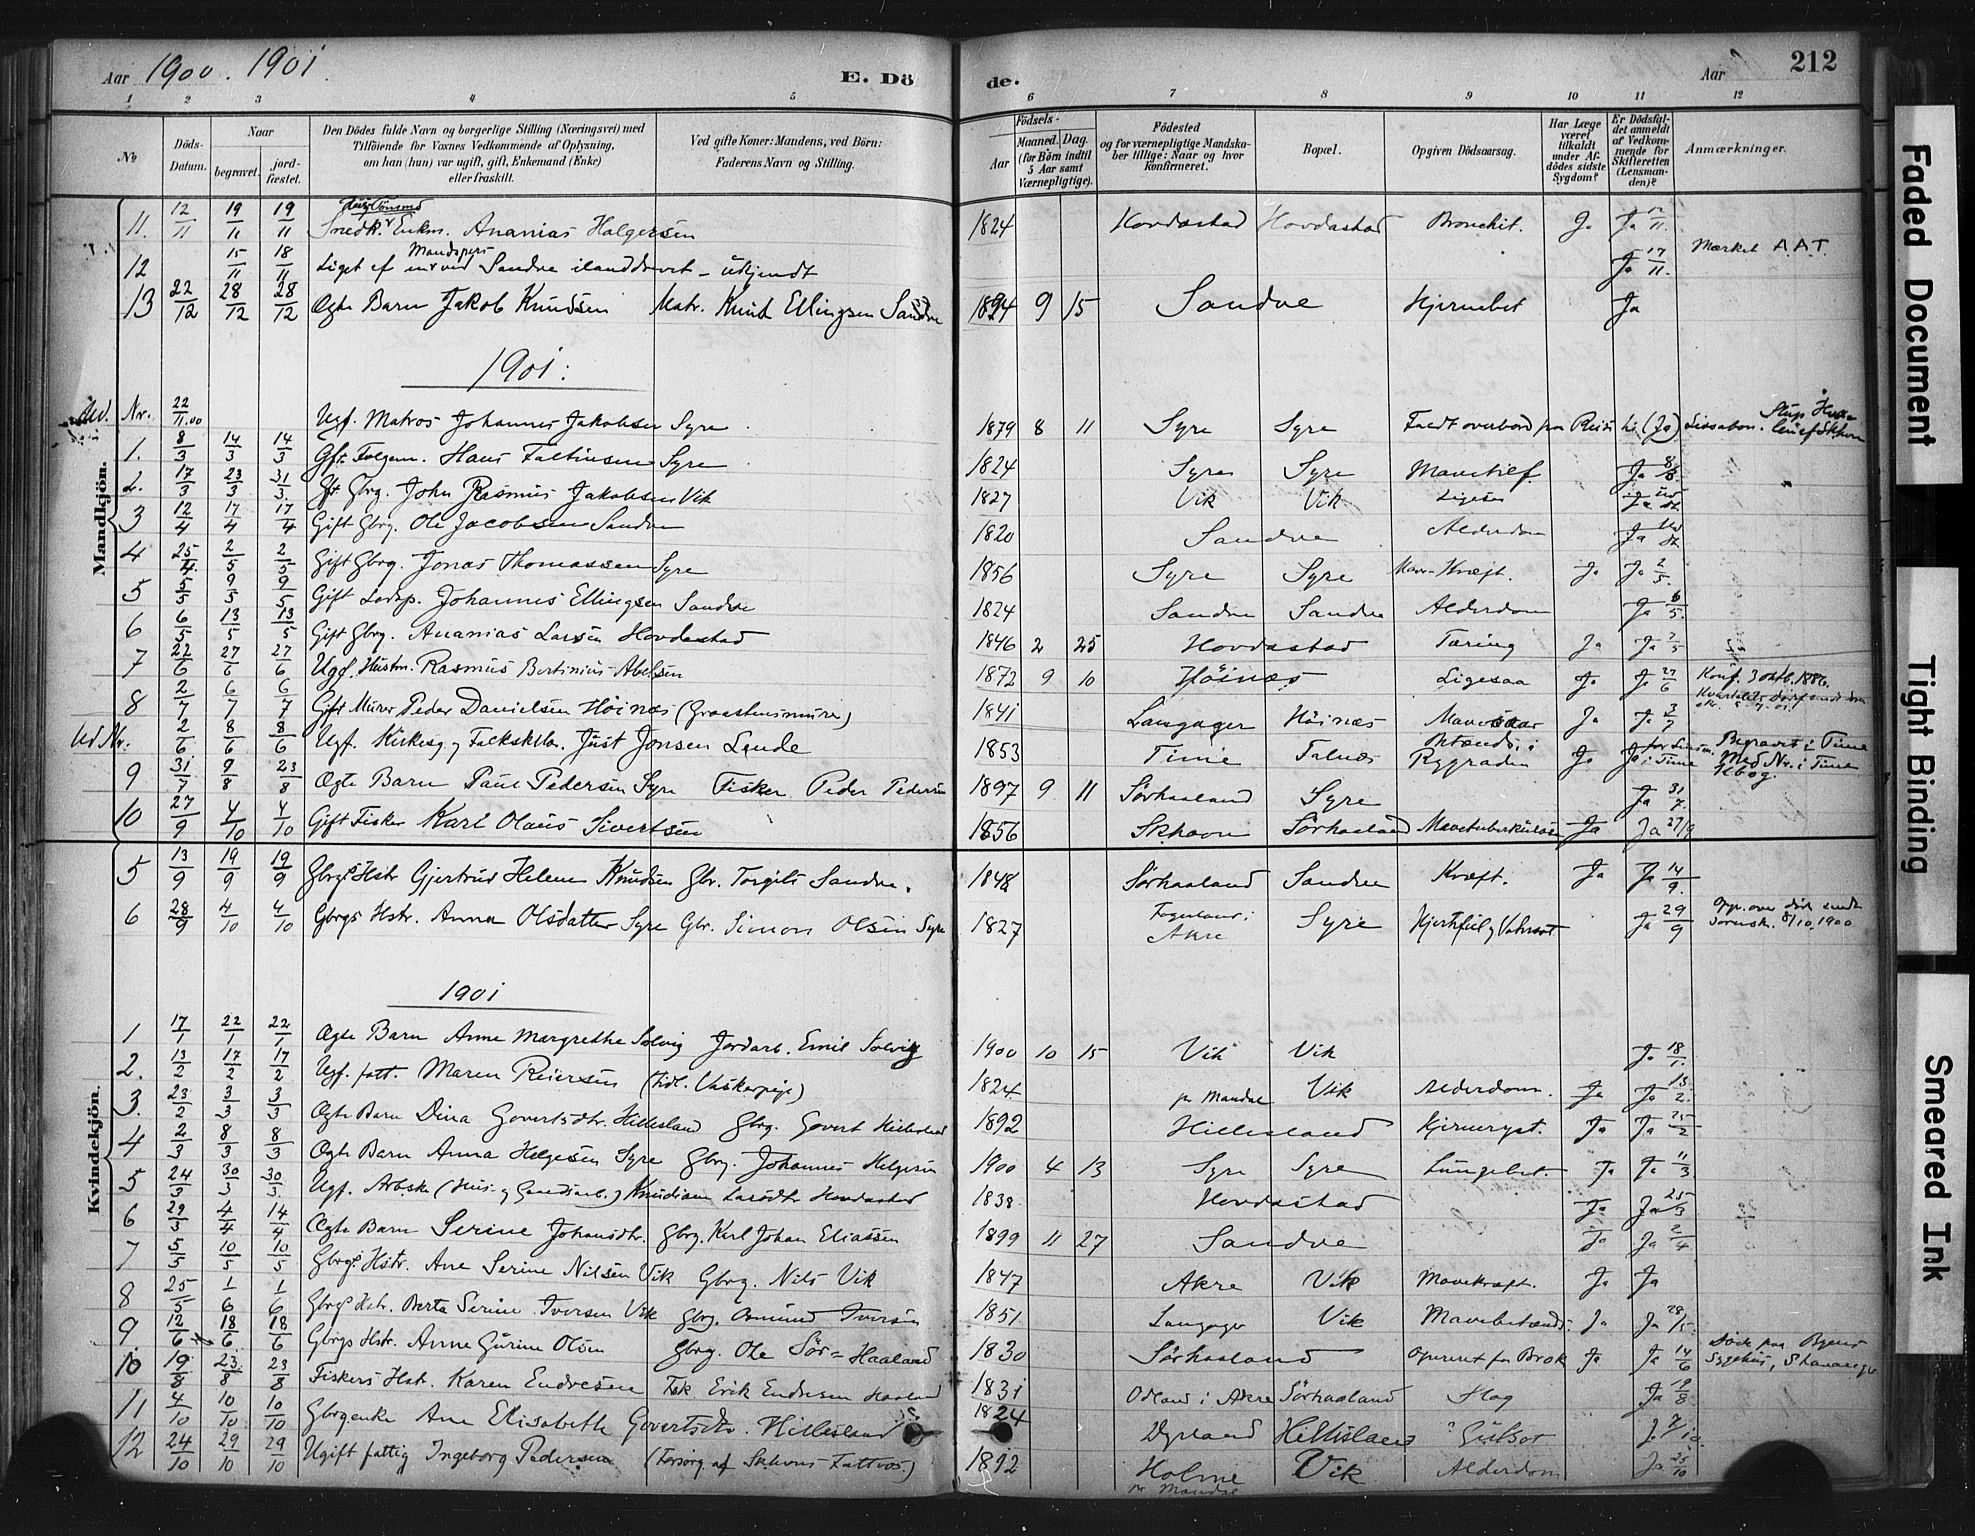 Aar 1900. 1901. E. Dö de. Aar 212
1 2 3 4 5 6 7 8 9 10 11 12
No Döds-Datum. Naar begravet. jordfæstet. Den Dödes fulde Navn og borgerlige Stilling (Næringsvei) med Tilföiende for Voxnes Vedkommende af Oplysning, om han (hun) var ugift, gift, Enkemand (Enke) eller fraskilt. Ved gifte Koner: Mandens, ved Börn: Faderens Navn og Stilling. Födsels- Aar Maaned. Dag. (for Börn indtil 5 Aar samt Værnepligtige). Födested og for værnepligtige Mandskaber tillige: Naar og hvor Konfirmeret. Bopæl. Opgiven Dödsaarsag. Har Læge været tilkaldt under Afdödes sidste Sygdom? Er Dödsfaldet anmeldt af Vedkommende for Skifteretten (Lensmanden)? Anmærkninger.
Mandkjön.
11. 12/11 19/11 19/11 Snedk. Enkm. Ananias Halgersen 1824 Hovdastad Hovdastad Bronchit. Ja Ja 12/11.
12 15/11 18/11 Liget af Mandspers ved Sandve ilanddrevet – ukjendt Ja 17/11. Mærket A.A.T.
13 22/12 28/12 28/12 Ægte Barn Jakob Knudsen Matr. Knud Ellingsen Sandve 1894 9 15 Sandve Hjernebet Ja
1901:
Ud. Nr. 22/11.00 Ugf. Matros Johannes Jakobsen Syre 1879 8 11 Syre Syre Faldt overbord paa Reise (Ja) Lissabon.
1. 8/3 14/3 14/3 Gft. Folgem. Hans Faltinsen Syre 1824 Syre Syre Mavetilf Ja 8/3.
2. 17/3 23/3 31/3. Gft. Gbrg. John Rasmus Jakobsen Vik 1827 Vik Vik Ligesaa Ja
3 12/4 17/4 17/4 Gift Gbrg. Ole Jacobsen Sandve 1820 Sandve Alderdom Ja
4 25/4. 2/5 2/5 Gift Gbrg. Jonas Thomassen Syre 1856 Syre Syre Mave-Kræft. Ja Ja 2/5.
5 5/5 9/5 9/5 Gift Losp. Johannes Ellingsen Sandve 1824 Sandve Sandve Alderdom Ja 6/5.
6 6/5 13/5 13/5 Gift Gbrg. Ananias Larsen Hovdastad 1846 2 25 Hovdastad Tæring Ja Ja 7/5
7 22/6 27/6 27/6 Ugf. Husm. Rasmus Bertinius Abelsen 1872 9 10 Höinæs Ligesaa Ja Ja 27/6 Konf. 3 oktb. 1886.
8 2/7 6/7 6/7 Gift Murer Peder Danielsen Höinæs (Graastensmurer) 1841 Langager Höinæs Ja Ja 3/7
Ud Nr. 2/6 8/6 8/6 Ugf. Kirkesg. og Folkeskler. Just Jonsen Lende 1853 Time Falnæs Betændels. i Rygraden Ja Ja for Lensm. i Time Begravet i Time Med Nr. i Time Kbog.
9 31/7 9/8 23/8 Ægte Barn Paul Pedersen Syre Fisker Peder Pedersen 1897 9 11 Sörhaaland Syre Ja 31/7.
10 27/9 4/10 4/10 Gift Fisker Karl Olaus Sivertsen 1856 Skhavn Sörhaaland Mavetuberkulose Ja Ja 27/9
5 13/9 19/9 19/9 Gbrgs Hstr Gjertrud Helene Knudsen Gbr. Torgils Sandve. 1848 Sörhaaland Sandve Kræft. Ja Ja 14/9.
6 28/9 4/10 4/10 Gbrgs Hstr. Anna Olsdatter Syre Gbr. Simon Olsen Syre 1827 i Akre Syre Hjertefeil og Vattersot Ja 29/9 Opg. over död sendt Sorensk. 8/10. 1900
1901
Kvindekjön.
1 17/1 22/1 22/1 Ægte Barn Anne Margrethe Solvig Jordarb. Emil Solvig 1900 10 15 Vik Vik Ja 18/1.
2. 13/2 17/2 17/2 Ugf. fatt. Maren Reiersen (tidl. Vaskerpige) 1824 pr Mandal Vik Alderdom. Ja Ja 13/2.
3. 23/2 3/3 3/3 Ægte Barn Dina Govertsdtr. Hillesland Gbrg. Govert Hillesland 1892 Hillesland Hjerneryst. Ja Ja 25/2
4 2/3 8/3 8/3 Ægte Barn Anna Helgesen Syre Gbrg. Johannes Helgesen 1900 4 13 Syre Syre Lungebet. Ja Ja 11/3
5 24/3 30/3 30/3. Ugf. Arbske (Hus- og Gaardsarb.) Knudiane Larsdtr Hovdastad 1838 Hovdastad Ja Ja 25/3
6 29/3 4/4 14/4 Ægte Barn Serine Johansdtr. Gbrg. Karl Johan Eliassen 1899 11 27 Sandve Ja Ja 2/4
7 5/5 10/5 10/5 Gbrgs Hstr. Ane Serine Nilsen Vik Gbrg. Nils Vik 1847 Akre Vik Mavekræft. Ja Ja
8 25/5 1/6 1/6 Gbrgs Hstr. Berta Serine Iversen Vik Gbrg. Osmund Iversen 1851 Langager Vik Mavebetænd. Ja Ja 28/5.
9 12/6 18/6 18/6 Gbrgs Hstr. Anne Gurine Olsen Gbrg. Ole Sör-Haaland 1830 Sörhaaland Opereret for Brok Ja Ja 14/6 Döde paa Byens Sygehus, Stavanger
10 19/8 23/8 23/8 Fiskers Hstr. Karen Endresen Fsk Erik Endresen Haaland 1831 Odland i Akre Sörhaaland Slag Ja 19/8
11 4/10 10/10 10/10 Gbrgenke Ane Elisabeth Govertsdtr. Hillesland 1824 Dyrland Hillesland Gulsot Ja 7/10.
12 24/10 29/10 29/10 Ugift fattig Ingeborg Pedersen (Forsörg. af Skhvns Fattvæs.) 1892 Holme pr Mandal Vik Alderdom Ja 25/10
Faded Document
Tight Binding
Smeared Ink